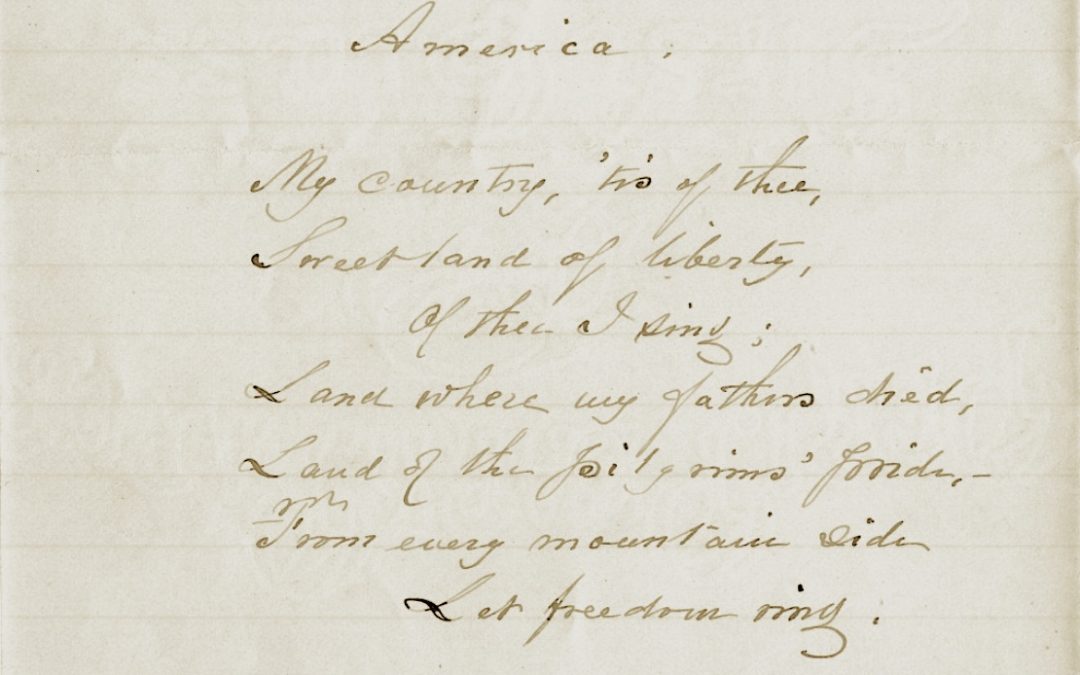 America.
My country, 'tis of thee,
Sweet land of liberty,
Of thee I sing;
Land where my fathers died,
Land of the pilgrims' pride,—
From every mountain side
Let freedom ring.